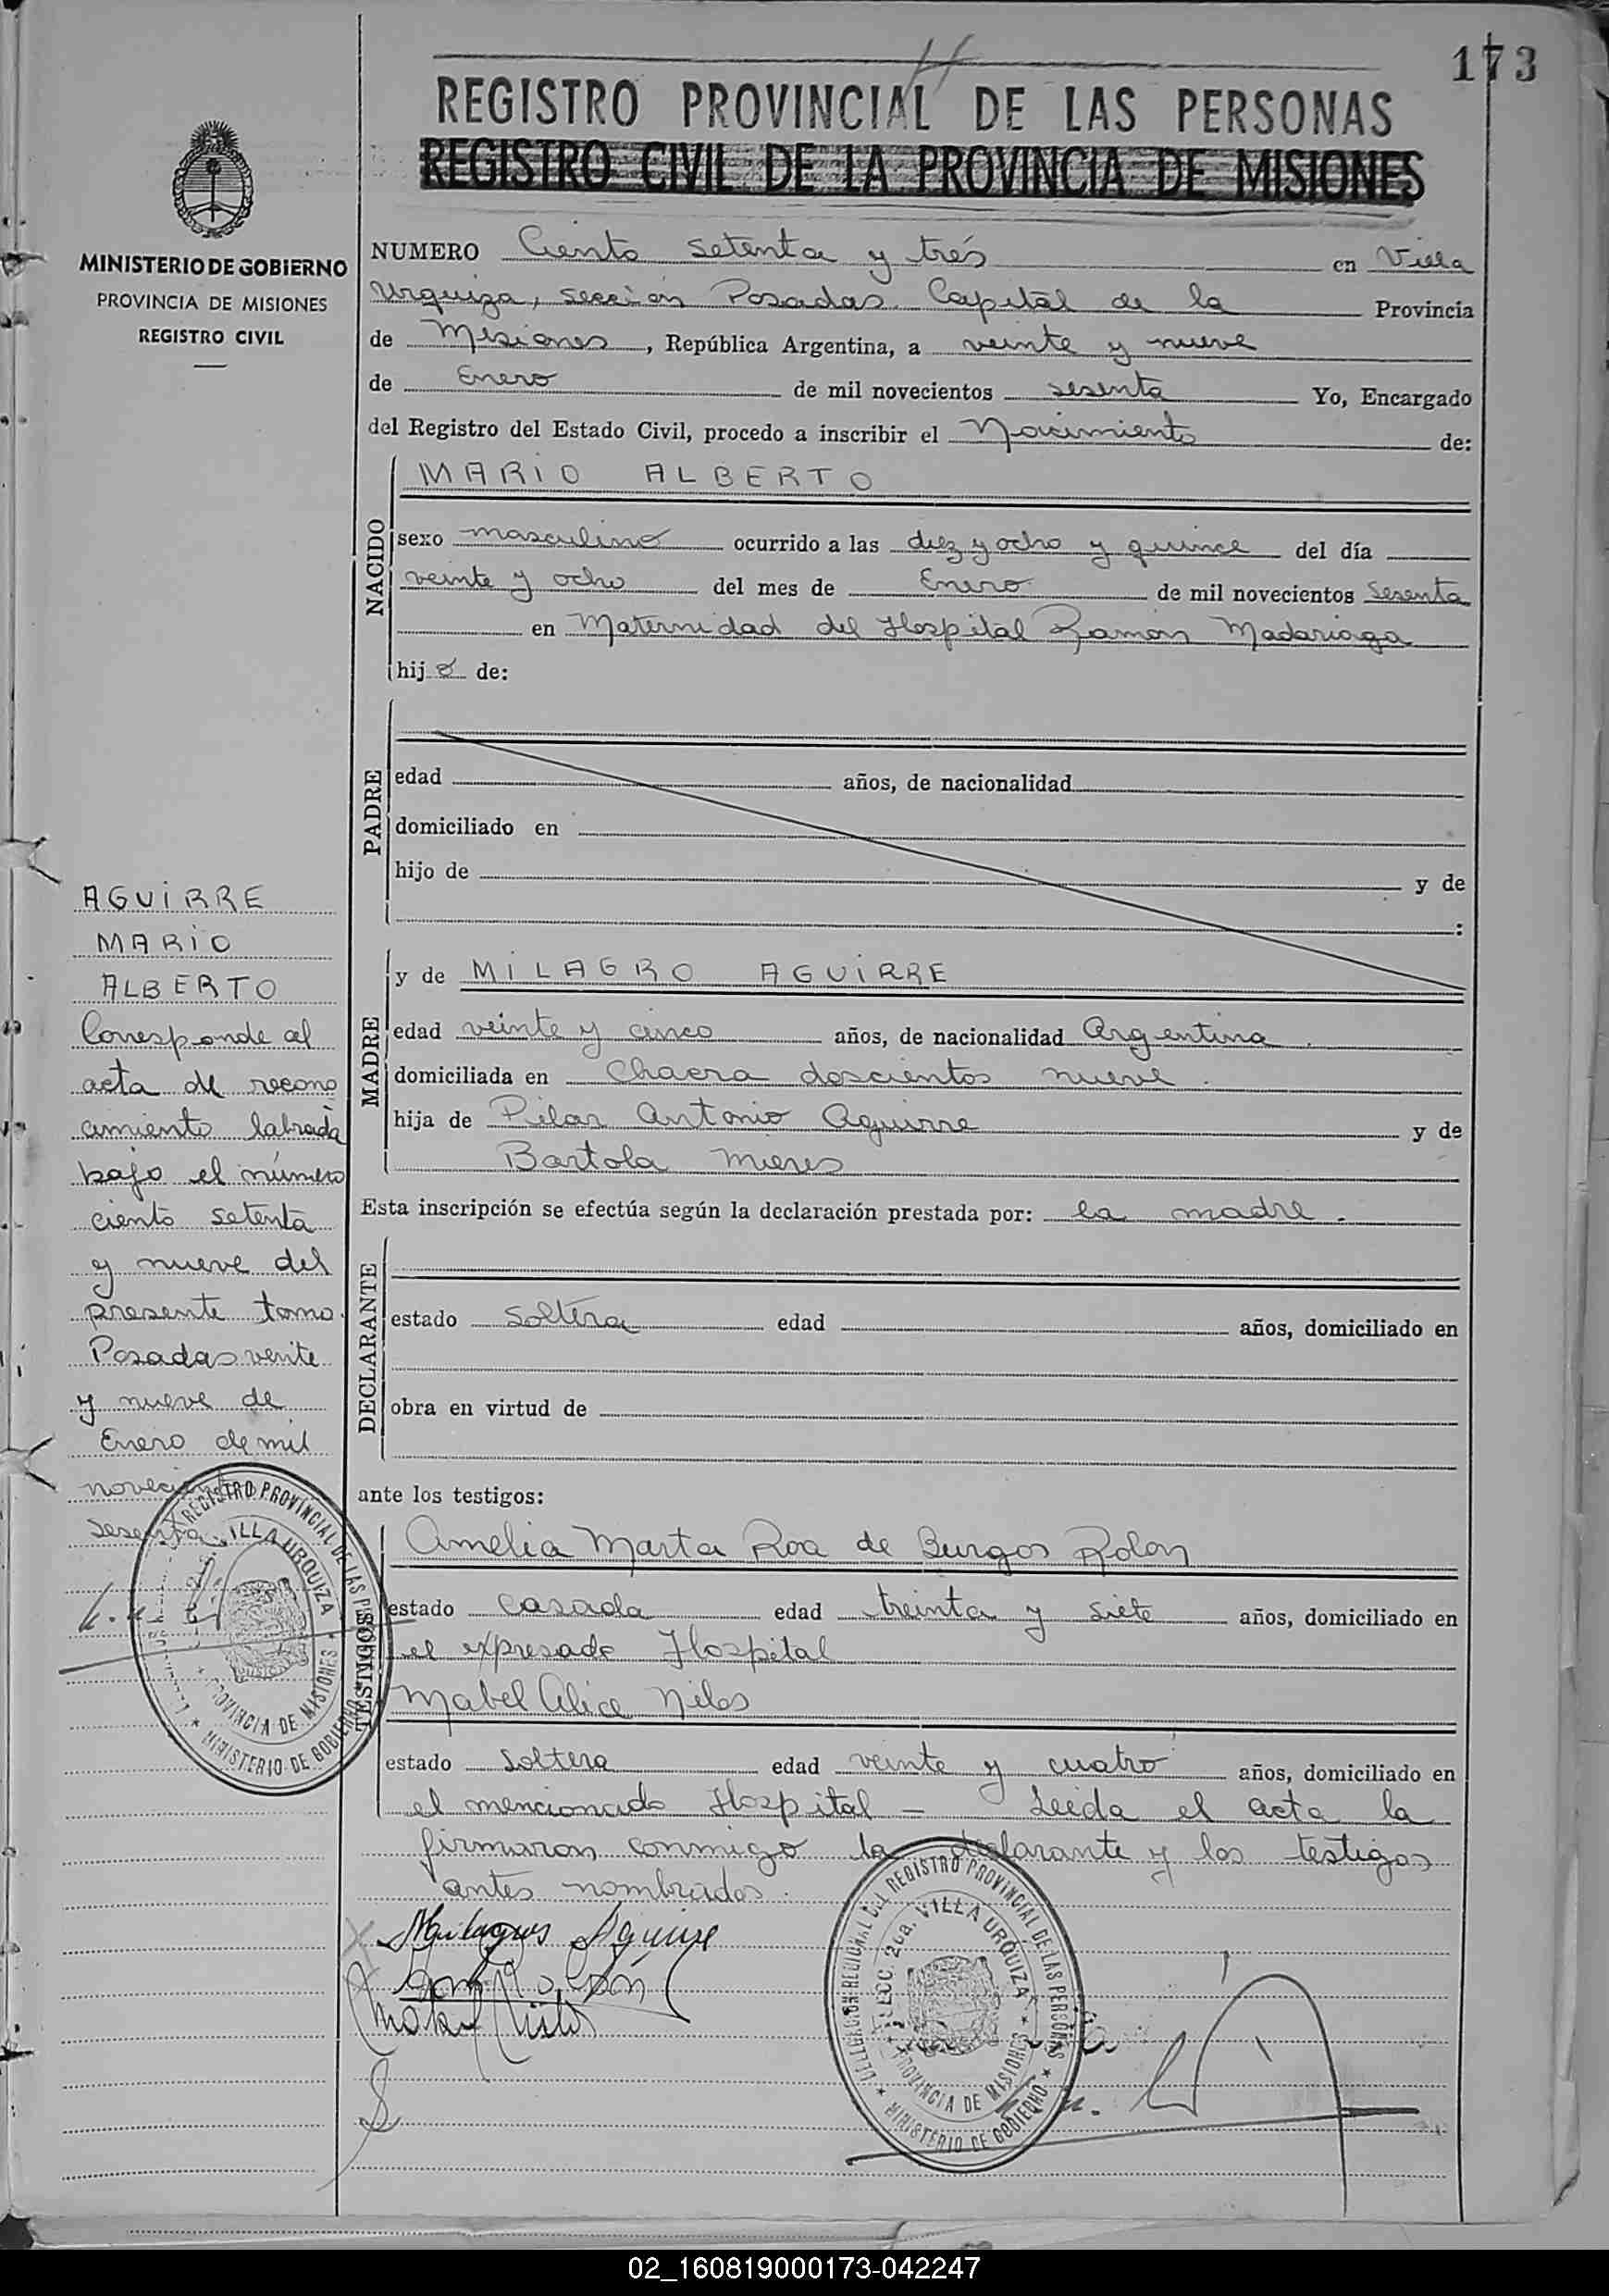 173
REGISTRO PROVINCIAL DE LAS PERSONAS
REGISTRO CIVIL DE LA PROVINCIA DE MISIONES
MINISTERIO DE GOBIERNO
PROVINCIA DE MISIONES
REGISTRO CIVIL
NUMERO Ciento setenta y trés en Villa
Urquiza, sección Posadas Capital de la Provincia
de Misiones, República Argentina, a veinte y nueve
de Enero de mil novecientos sesenta Yo, Encargado
del Registro del Estado Civil, procedo a inscribir el Nacimiento de:
NACIDO
MARIO ALBERTO
sexo masculino ocurrido a las diez y ocho y quince del día
veinte y ocho del mes de Enero de mil novecientos sesenta
en Maternidad del Hospital Ramon Madariaga
hijo de:
PADRE
edad años, de nacionalidad
domiciliado en
hijo de y de
:
MADRE
y de MILAGRO AGUIRRE
edad veinte y cinco años, de nacionalidad Argentina.
domiciliada en Chacra doscientos nueve.
hija de Pilar Antonio Aguirre y de
Bartola Mieres
Esta inscripción se efectúa según la declaración prestada por: la madre.
DECLARANTE
estado soltera edad años, domiciliado en
obra en virtud de
ante los testigos:
TESTIGOS
Amelia Marta Roa de Burgos Rolon
estado casada edad treinta y siete años, domiciliado en
el expresado Hospital
Mabel Alice
estado soltera edad veinte y cuatro años, domiciliado en
el mencionado Hospital - Leida el acta la
firmaron conmigo la declarante y los testigos
antes nombrados.
Milagros Aguirre
AGUIRRE
MARIO
ALBERTO
Corresponde al
acta de recono
cimiento labrada
bajo el número
ciento setenta
y nueve del
presente tomo.
Posadas veinte
y nueve de
Enero de mil
novecientos
sesenta
REGISTRO PROVINCIAL DE LAS PERSONAS
VILLA URQUIZA
PROVINCIA DE MISIONES
MINISTERIO DE GOBIERNO
DELEGACION REGIONAL REGISTRO PROVINCIAL DE LAS PERSONAS
SECC. 2da. VILLA URQUIZA
PROVINCIA DE MISIONES
MINISTERIO DE GOBIERNO
02_160819000173-042247